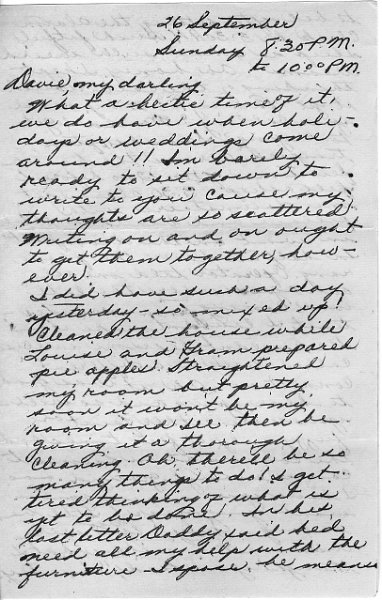 26 September
Sunday 8:30 P.M.
to 10:00 P.M.
Davie my darling
What a hectic time of it,
we do have when holi-
days or weddings come
around!! Im barely
ready to sit down to
write to you cause my
thoughts are so scattered.
Writing on and on ought
to get them together, how-
ever.
I did have such a day
yesterday - so mixed up!
Cleaned the house while
Louise and Gram prepared
pie apples. Straightened
my room but pretty
soon it won't be my
room and see then be
giving it a thorough
cleaning. Oh there'll be so
many things to do! I get
tired thinking of what is
yet to be done. In his
last letter Daddy said he'd
need all my help with the
furniture I spose he means